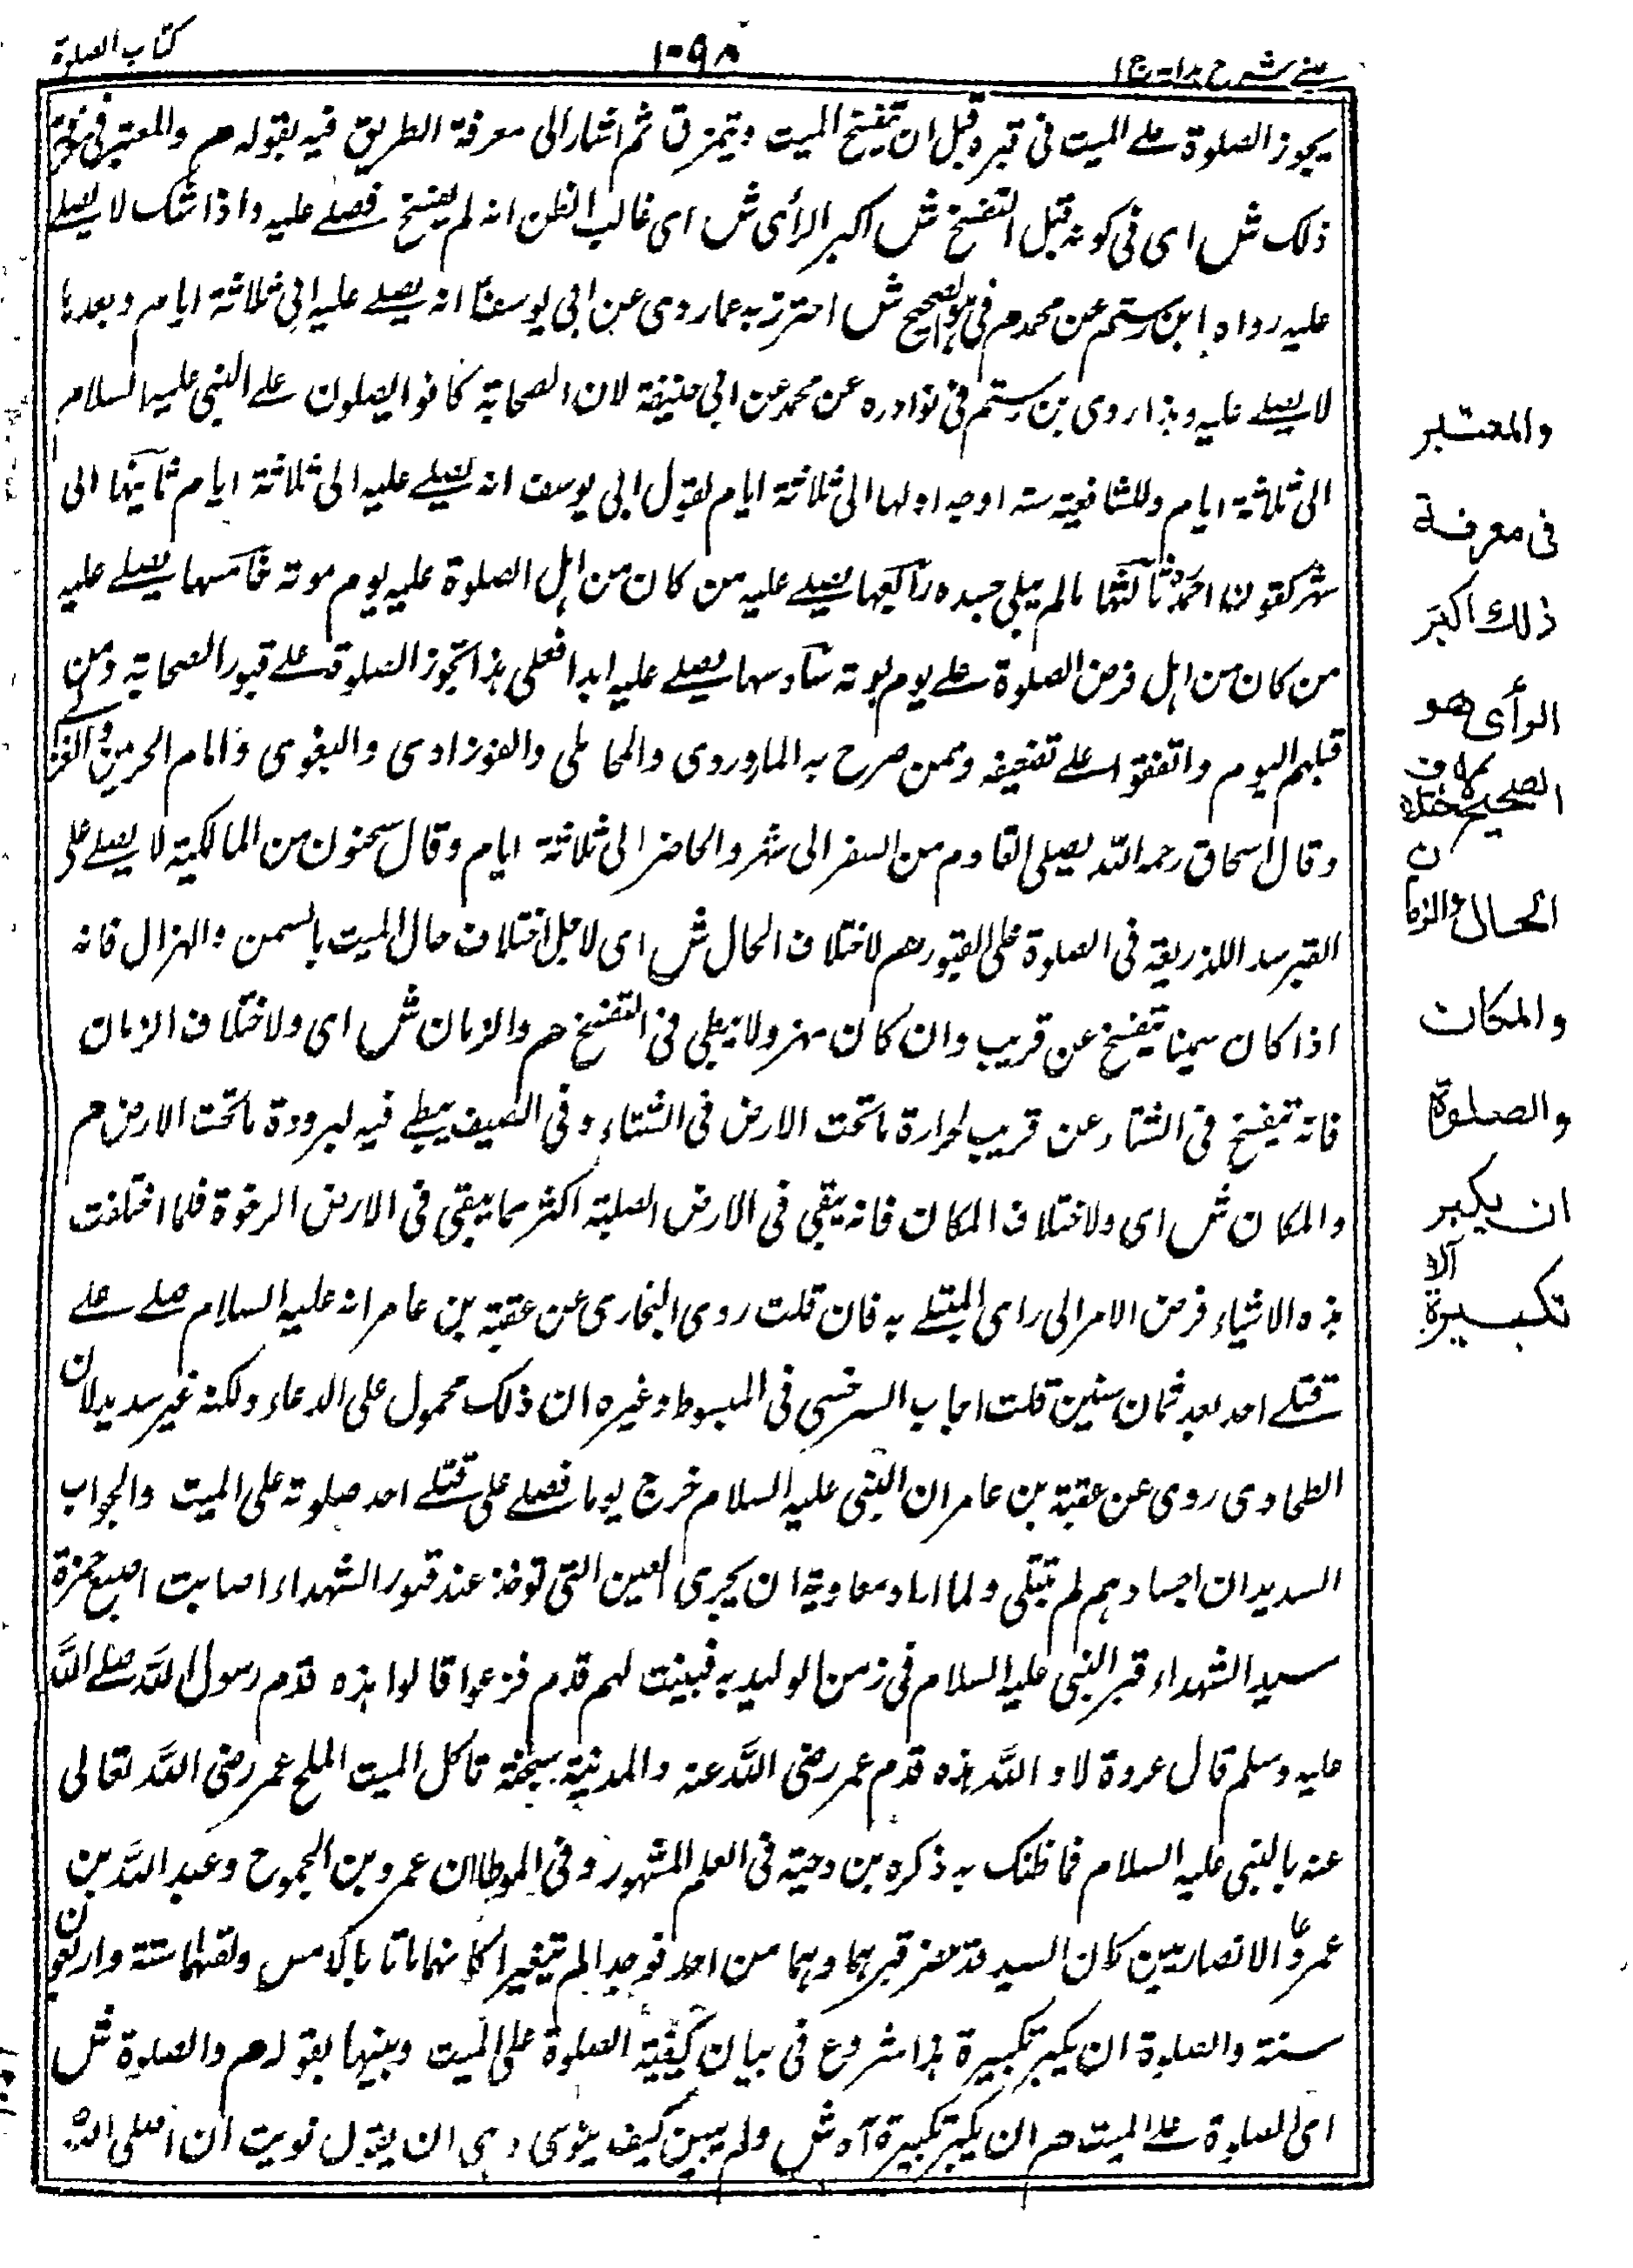 عينى شرح هداية ج ا
١٠٩٨
كتاب الصلوة
يجوز الصلوة على الميت فى قبره قبل ان يتفسخ الميت ويتمزق ثم اشار الى معرفة الطريق فيه بقوله هم والمعتبر فى معرفة
ذلك ش اى فى كونه قبل التفسخ ش اكبر الرأى ش اى غالب الظن انه لم يتفسخ فصلى عليه واذا شك لا يصلى
عليه رواه ابن رستم عن محمد هم فى هو الصحيح ش احترز به عما روى عن ابى يوسف انه يصلى عليه الى ثلاثة ايام وبعدها
لا يصلى عليه وهذا روى بن رستم فى نوادره عن محمد عن ابى حنيفة لان الصحابة كانوا يصلون على النبى عليه السلام
الى ثلاثة ايام وللشافعية ستة اوجه اولها الى ثلاثة ايام لقول ابى يوسف انه يصلى عليه الى ثلاثة ايام ثانيها الى
شهر كقول احمد ثالثها مالم يبلى جسده رابعها يصلى عليه من كان من اهل الصلوة عليه يوم موته خامسها يصلى عليه
من كان من اهل فرض الصلوة على يوم موته سادسها يصلى عليه ابدا فعلى هذا تجوز الصلوة على قبور الصحابة ومن
قبلهم اليوم واتفقوا على تضعيفه وممن صرح به الماوردى والمحاملى والفورزادى والبغوى وامام الحرمين والغزالى
وقال اسحاق رحمه الله يصلى القادم من السفر الى شهر والحاضر الى ثلاثة ايام وقال سحنون من المالكية لا يصلى على
القبر سد اللذريعة فى الصلوة على القبور هم لاختلاف الحال ش اى لاجل اختلاف حال الميت بالسمن والهزال فانه
اذا كان سمينا يتفسخ عن قريب وان كان مهزولا يبطى فى التفسخ هم والزمان ش اى ولاختلاف الزمان
فانه يتفسخ فى الشتاء عن قريب لحرارة ما تحت الارض فى الشتاء وفى الصيف يبطى فيه لبرودة ما تحت الارض هم
والمكان ش اى ولاختلاف المكان فانه يبقى فى الارض الصلبة اكثر مما يبقى فى الارض الرخوة فلما اختلفت
هذه الاشياء فرض الامر الى راى المبتلى به فان قلت روى البخارى عن عقبة بن عامر انه عليه السلام صلى على
قتلى احد بعد ثمان سنين قلت اجاب السرخسى فى المبسوط وغيره ان ذلك محمول على الدعاء ولكنه غير سديد لان
الطحاوى روى عن عقبة بن عامر ان النبى عليه السلام خرج يوما فصلى على قتلى احد صلوته على الميت والجواب
السديد ان اجسادهم لم تبلى ولما اراد معاوية ان يجرى العين التى توخذ عند قبور الشهداء اصابت اصبع حمزة
سيد الشهداء قبر النبى عليه السلام فى زمن الوليد به فبينت لهم قدم فزعوا قالوا هذه قدم رسول الله صلى الله
عليه وسلم قال عروة لا والله هذه قدم عمر رضى الله عنه والمدينة سبخة تاكل الميت الملح عمر رضى الله تعالى
عنه بالنبى عليه السلام فما ظنك به ذكره بن دحية فى العلم المشهور وفى الموطا ان عمرو بن الجموح وعبد الله بن
عمرو الانصاريين كان السيد قد حفر قبرهما وهما من احد فوجدا لم يتغيرا كانهما ماتا بالامس ولقتهما ستة واربعون
سنة والصلوة ان يكبر تكبيرة هذا شروع فى بيان كيفية الصلوة على الميت وبينها بقوله هم والصلوة ش
اى الصلوة على الميت هم ان يكبر تكبيرة آه ش ولم يبين كيف ينوى وهى ان يقول نويت ان اصلى لله
والمعتبر
فى معرفة
ذلك اكبر
الرأى هو
الصحيح لاختلاف
الحال والزمان
والمكان
والصلوة
ان يكبر
تكبيرة الا